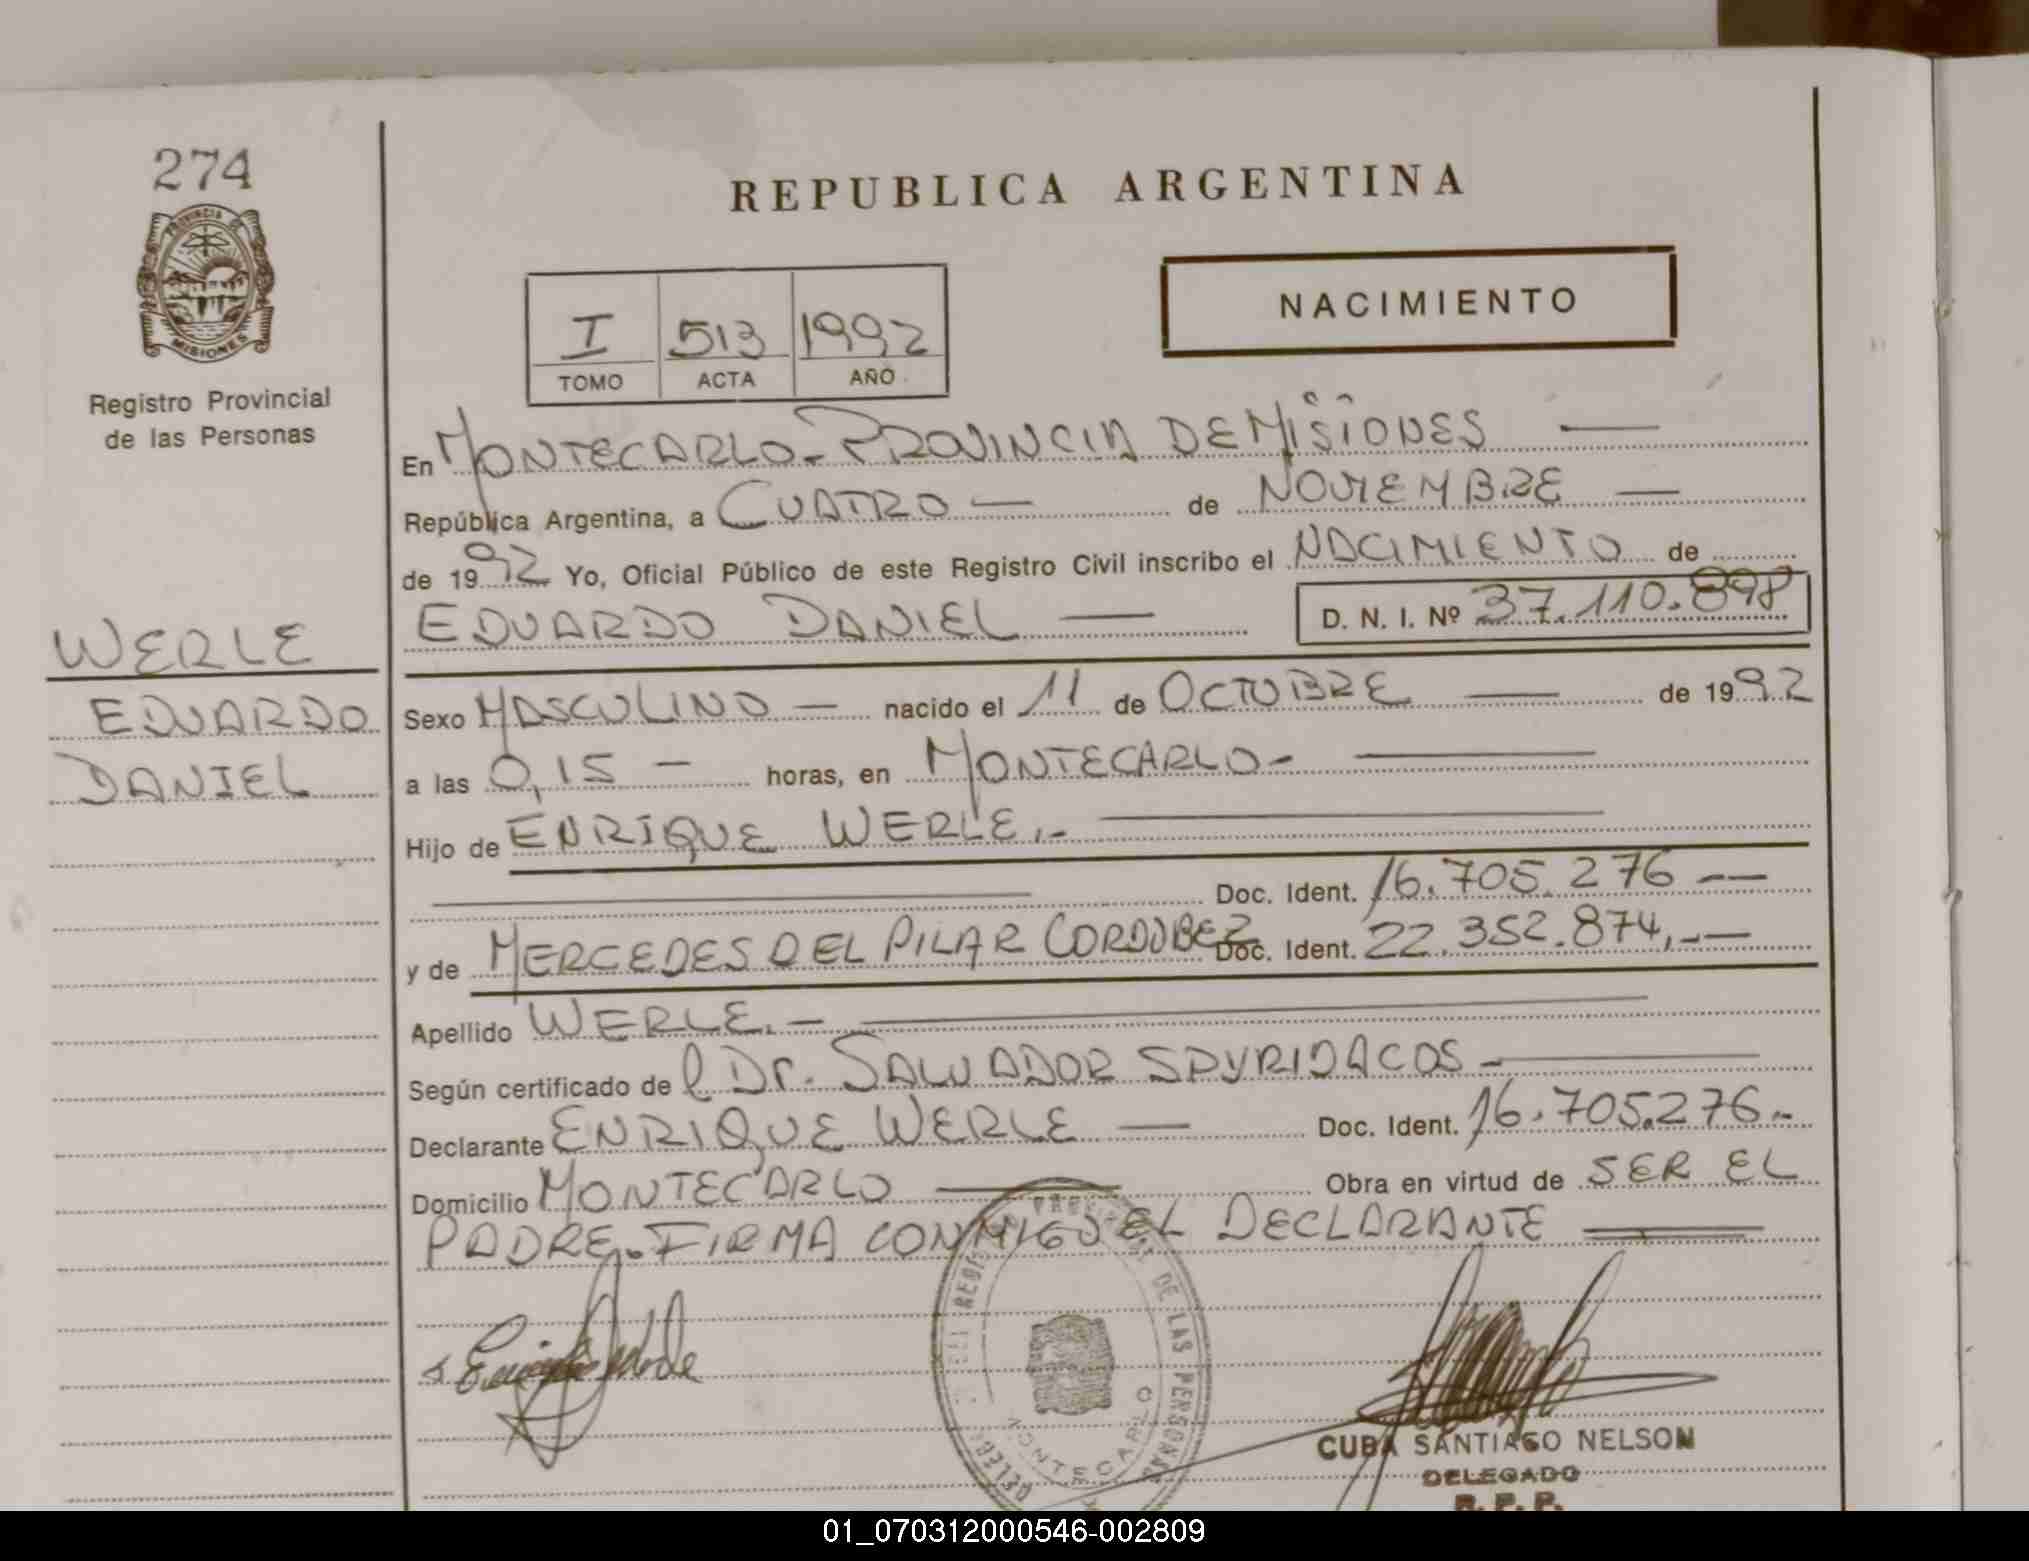 274
REPUBLICA ARGENTINA
PROVINCIA DE
MISIONES
Registro Provincial
de las Personas
NACIMIENTO
I 513 1992
TOMO ACTA AÑO
En MONTECARLO - PROVINCIA DE MISIONES
República Argentina, a CUATRO — de NOVIEMBRE —
de 1992 Yo, Oficial Público de este Registro Civil inscribo el NACIMIENTO de
EDUARDO DANIEL — D. N. I. Nº 37.110.898
WERLE
EDUARDO
DANIEL
Sexo MASCULINO — nacido el 11 de OCTUBRE — de 1992
a las 0,15 — horas, en MONTECARLO -
Hijo de ENRIQUE WERLE.-
Doc. Ident. 16.705.276 --
y de MERCEDES DEL PILAR CORDOBEZ Doc. Ident. 22.352.874.--
Apellido WERLE.-
Según certificado de l Dr. SALVADOR SPYRIDACOS -
Declarante ENRIQUE WERLE — Doc. Ident. 16.705.276.-
Domicilio MONTECARLO — Obra en virtud de SER EL
PADRE. FIRMA CONMIGO EL DECLARANTE
DE LAS PERSONAS
MONTECARLO
CUBA SANTIAGO NELSON
DELEGADO
R. P. P.
01_070312000546-002809